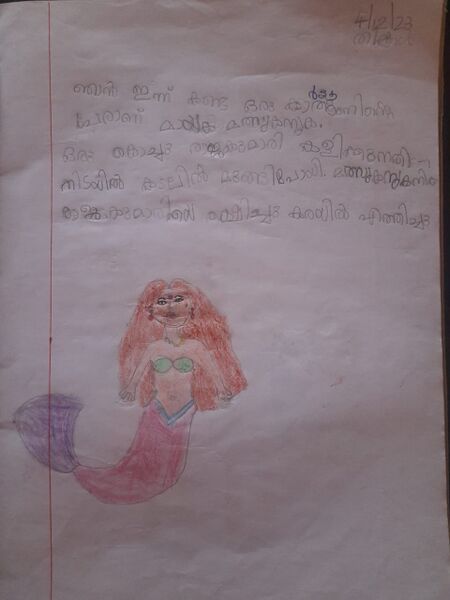 4/12/23
തിങ്കൾ
ഞാൻ ഇന്ന് കണ്ട ഒരു കാർട്ടൂണിന്റെ
പേരാണ് മായക മത്സ്യകന്യക.
ഒരു കൊച്ചു രാജകുമാരി കളിക്കുന്നതി-
നിടയിൽ കടലിൽ മുങ്ങിപോയി. മത്സ്യകന്യകനിന
രാജകുമാരിയെ രക്ഷിച്ചു കരയിൽ എത്തിച്ചു